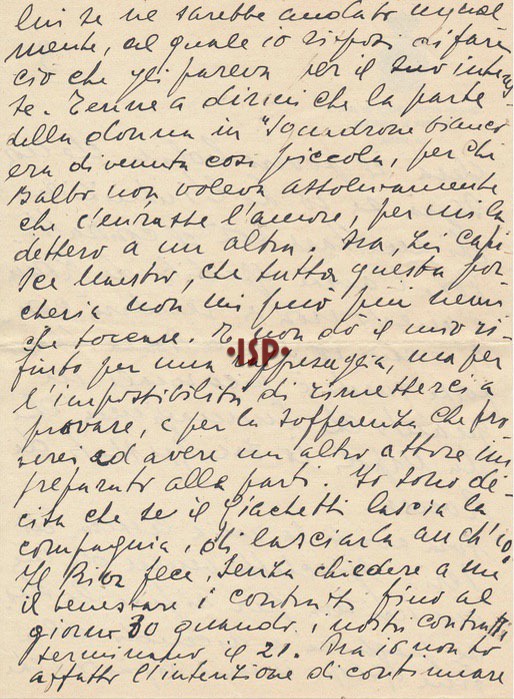 lui se ne sarebbe andato ugual
mente, al quale io risposi di fare
ciò che gli pareva per il suo interes
se. Tenne a dirmi che la parte
della donna in "Squadrone bianco
era divenuta così piccola, perchè
Balbo non voleva assolutamente
che c'entrasse l'amore, per cui la
dettero a un altra. Ma, Lei capi
sce Maestro, che tutta questa por
cheria non mi può più nemme
che toccare. E non dò il mio ri-
fiuto per una rappresaglia, ma per
l'impossibilità di rimetterci a
provare, e per la sofferenza che pro
verei ad avere un altro attore im
preparato alla parte. Io sono de-
cisa che se il Giachetti lascia la
compagnia, di lasciarla anch'io.
Il Riva fece, senza chiedere a me
il benestare i contratti fino al
giorno 30 quando i nostri contratti
terminano il 21. Ma io non ho
affatto l'intenzione di continuare
·ISP·